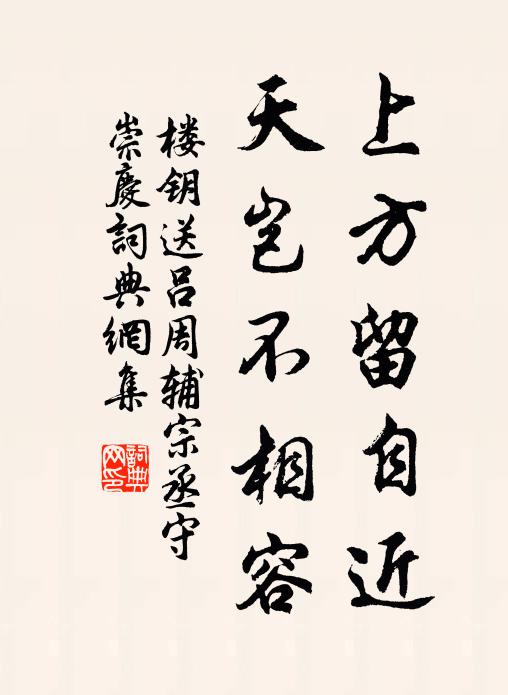 上方留自近
天岂不相容
楼钥送吕周辅宗丞守
崇慶詞典網集
詞典网印